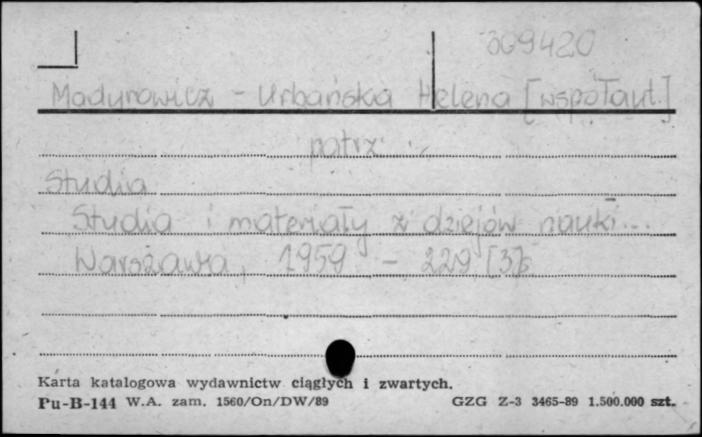 309420
Madurowicz - Urbańska Helena [współaut.]
patrz
Studia
Studia i materiały z dziejów nauki...
Warszawa, 1959 - 229 [3]s
Karta katalogowa wydawnictw ciągłych i zwartych.
Pu-B-144 W.A. zam. 1560/On/DW/89 GZG Z-3 3465-89 1.500.000 szt.